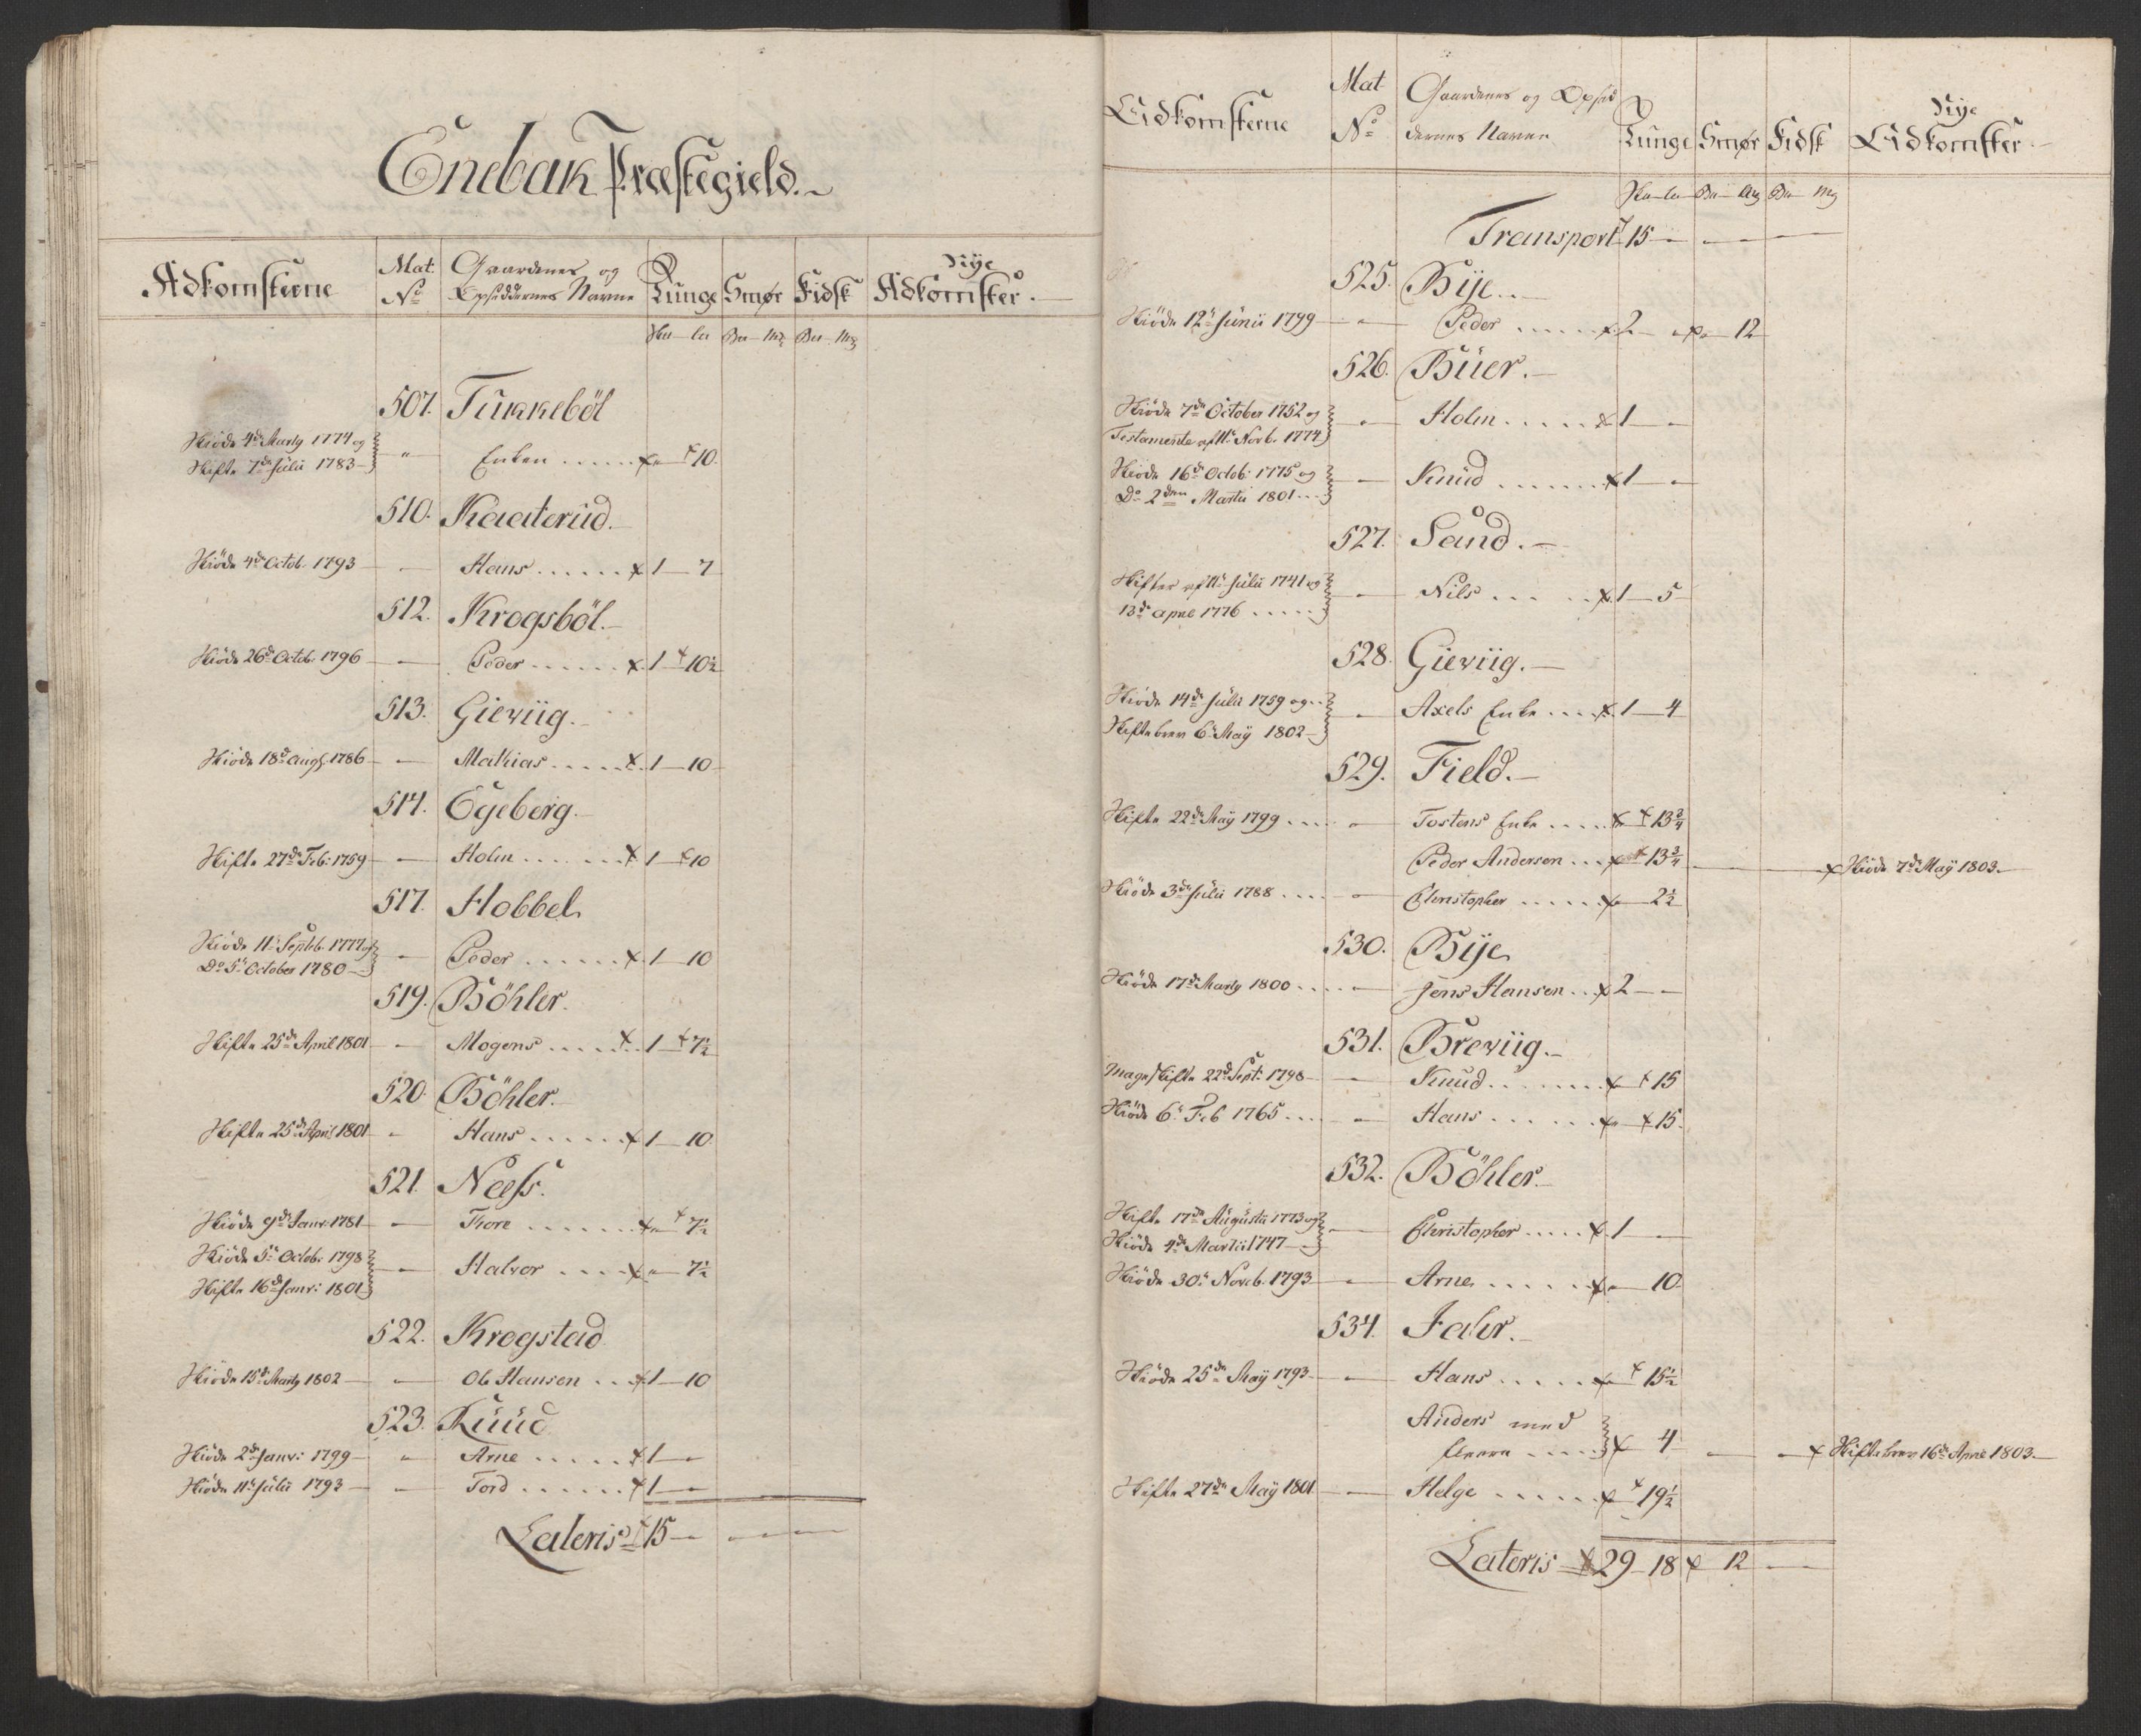 Enebak Præstegield.
Adkomsterne Mat. No Gaardenes og Opsiddernes Navne Tunge Smør Fidsk Nye Adkomster.
Hu La Bu Mg Bu Mg
507. Tükkeböl
Skiöde 4de Marty 1774 og
Skifte 7de Julii 1783 " Enken ...... x " x 10.
510. Kaaterüd.
Skiöde 4de Octob. 1793 — Hans ...... x 1 — 7
512. Krogsböl.
Skiöde 26de Octob. 1796 — Peder ...... x 1 x 10½
513. Gieviig.
Skiöde 18de Aug. 1786 — Mathias ..... x 1 — 10
514. Egeberg.
Skifte 27de Feb: 1759 — Holm ...... x 1 x 10
517. Hobbel
Skiöde 11te Septeb. 1777 og
Do 5te October 1780 — Peder ...... x 1 10
519. Böhler.
Skifte 25de April 1801 — Mogens ...... x 1 x 7½
520. Böhler.
Skifte 25de April 1801 " Hans ...... x 1 — 10.
521. Neess.
Skiöde 9de Janv: 1781 — Tore ...... x " x 7½
Skiöde 5te Octob: 1798
Skifte 16de Janv: 1801 — Halvor .... x " 7½
522. Krogstad
Skiöde 15de Marty 1802 — Ole Hansen .. x 1 — 10
523. Rüüd
Skiöde 2de Janv: 1799 — " Arne ..... x 1 — "
Skiöde 11te Julii 1793 — Tord ...... x 1 — "
Lateris x 15 —
Adkomsterne Mat No Gaardenes og Opsid dernes Navne Tunge Smør Fidsk Nye Adkomster.
Hu La Bu Mg Bu Mg
Transport 15 —
525. Bÿe.
Skiöde 12te Junii 1799 — Peder ..... x 2 — " x " — 12
526. Büer.
Skiöde 7de October 1752 og
Testamente af 11te Novb. 1774 " Holm ..... x 1 — "
Skiöde 16de Octob: 1775 og
Do 2den Martii 1801 ... — Knüd ...... x 1 — "
527. Sand.
Skifter af 11te Julii 1741 og
13de April 1776 ..... — Nils ... x 1 — 5
528. Gieviig.
Skiöde 14de Julii 1759 og ..
Skiftebrev 6te Maÿ 1802 " Axels Enke .... x 1 — 4
529. Field.
Skifte 22de Maÿ 1799 .... " Tostens Enke ..... x " x 13¾
Peder Andersen ... x " x 13¾ — x Skiöde 7de Maÿ 1803.
Skiöde 3de Julii 1788 .... " Christopher ..... x " — 2½
530. Bÿe
Skiöde 17de Marty 1800 .... — Jens Hansen .. x 2 — —
531. Breviig.
Mageskifte 22de Sept: 1798 — Knüd ....... x x 15
Skiöde 6te Feb 1765 .... " Hans ...... x " x 15.
532. Böhler.
Skifte 17de Augustii 1773 og
Skiöde 4de Martii 1747 — Christopher ..... x 1 —
Skiöde 30te Noveb. 1793 " Arne ...... x " — 10.
534. Jahr.
Skiöde 25de Maÿ 1793 — Hans ...... x " x 15½
Anders med
fleere .... x 4 — " x Skiftebrev 16de April 1803.
Skifte 27de Maÿ 1801 — Helge ...... x x 19½
Lateris x 29 — 18 x 12 —